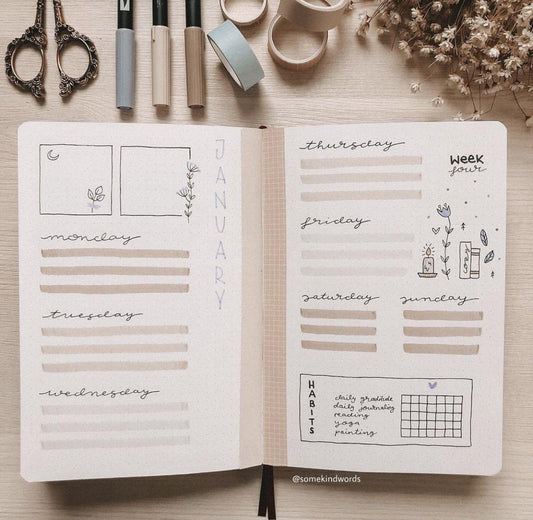 JANUARY
monday
tuesday
wednesday
thursday
week
four
friday
saturday
sunday
HABITS
daily gratitude
daily journaling
reading
yoga
painting
@somekindwords